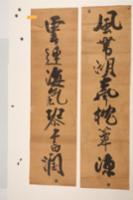 風帶潮聲枕簟涼
雲連海氣琴書潤